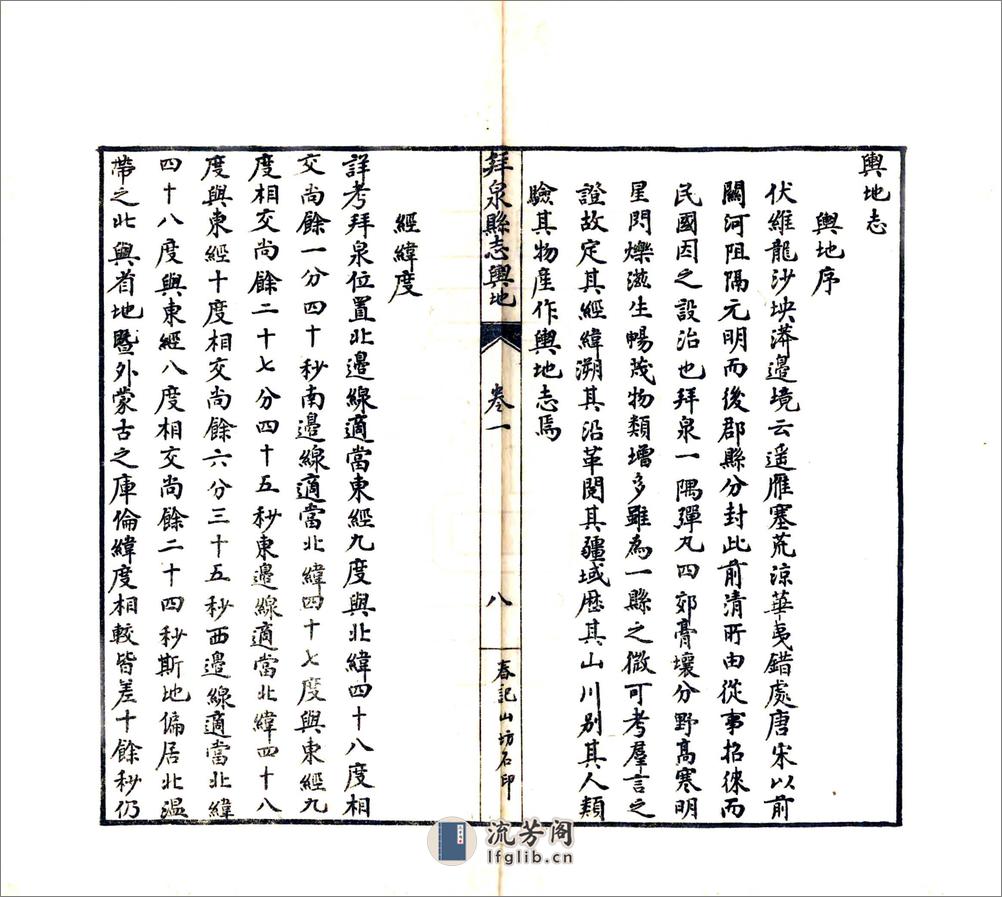 輿地志
輿地序
伏維龍沙坱漭邊境云遥雁塞荒涼華夷錯處唐宋以前
關河阻隔元明而後郡縣分封此前清所由從事招徠而
民國因之設治也拜泉一隅彈丸四郊膏壤分野高寒明
星閃爍滋生暢茂物類增多雖為一縣之微可考羣言之
證故定其經緯溯其沿革閱其疆域歴其山川别其人類
驗其物産作輿地志焉
拜泉縣志輿地
卷一
八
春記山坊石印
經緯度
詳考拜泉位置北邊線適當東經九度與北緯四十八度相
交尚餘一分四十秒南邊線適當北緯四十七度與東經九
度相交尚餘二十七分四十五秒東邊線適當北緯四十八
度與東經十度相交尚餘六分三十五秒西邊線適當北緯
四十八度與東經八度相交尚餘二十四秒斯地偏居北温
帶之北與省地暨外蒙古之庫倫緯度相較皆差十餘秒仍
流芳阁
lfglib.cn